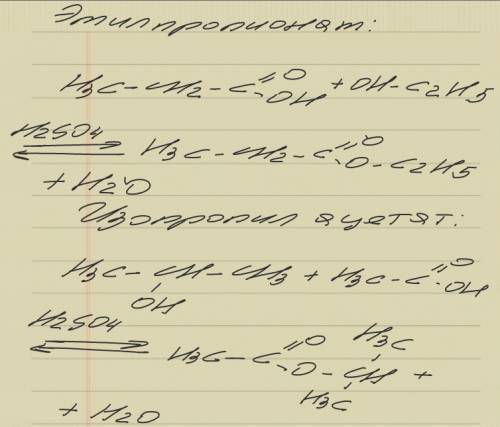 Этилпропионат:
H3C-CH2-C=O-OH + OH-C2H5
H2SO4
⇌ H3C-CH2-C=O-O-C2H5
+ H2O
Изопропил ацетят:
H3C-CH-CH3 + H3C-C=O-OH
OH
H2SO4
⇌ H3C-C=O-O-CH +
H3C
H3C
+ H2O